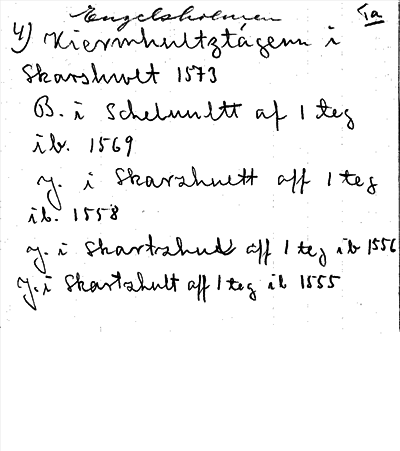 Engelsholmen Ta
4) Kiermhultztágenn i
Skarshwlt 1573
B. i Schelmultt af 1 teg
ib. 1569
J. i Skarzhuett aff 1 teg
ib. 1558
J. i Skartzhud aff 1 teg ib 1556
J. i Skartzhult aff 1 teg ib 1555